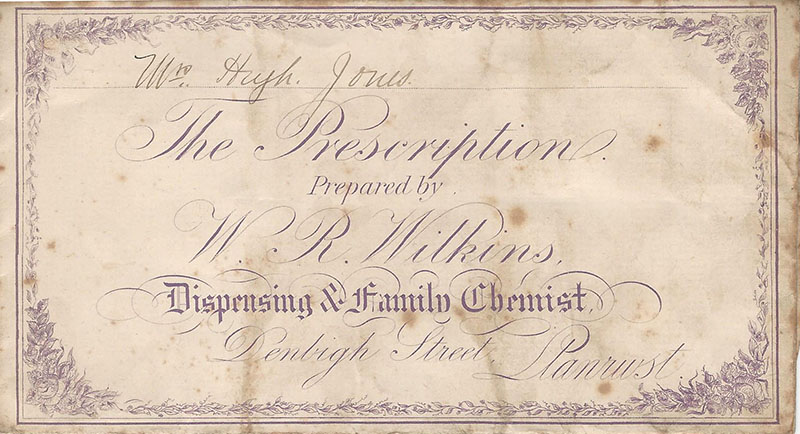 Mrs. Hugh. Jones.
The Prescription.
Prepared by
W. R. Wilkins,
Dispensing & Family Chemist,
Denbigh Street, Llanrwst.